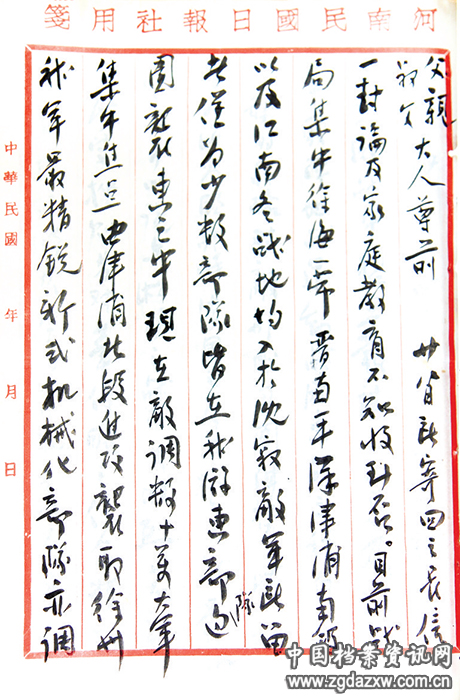 河南民國日報社用箋
父親
叔父 大人尊前 寄回之長信
一封論及家庭教育不知收到否。目前戰
局集中徐海一帶晋南平漢津浦南段
以及江南各戰地均入於沈寂敵軍所留
者僅為少數部隊皆在我游部隊包
圍襲之中現在敵調數十萬大軍
集中焦点由津浦北段進攻襲取徐州
我軍最精銳新式机械化部隊亦調
中華民國 年 月 日
中国档案资讯网
www.zgdazxw.com.cn